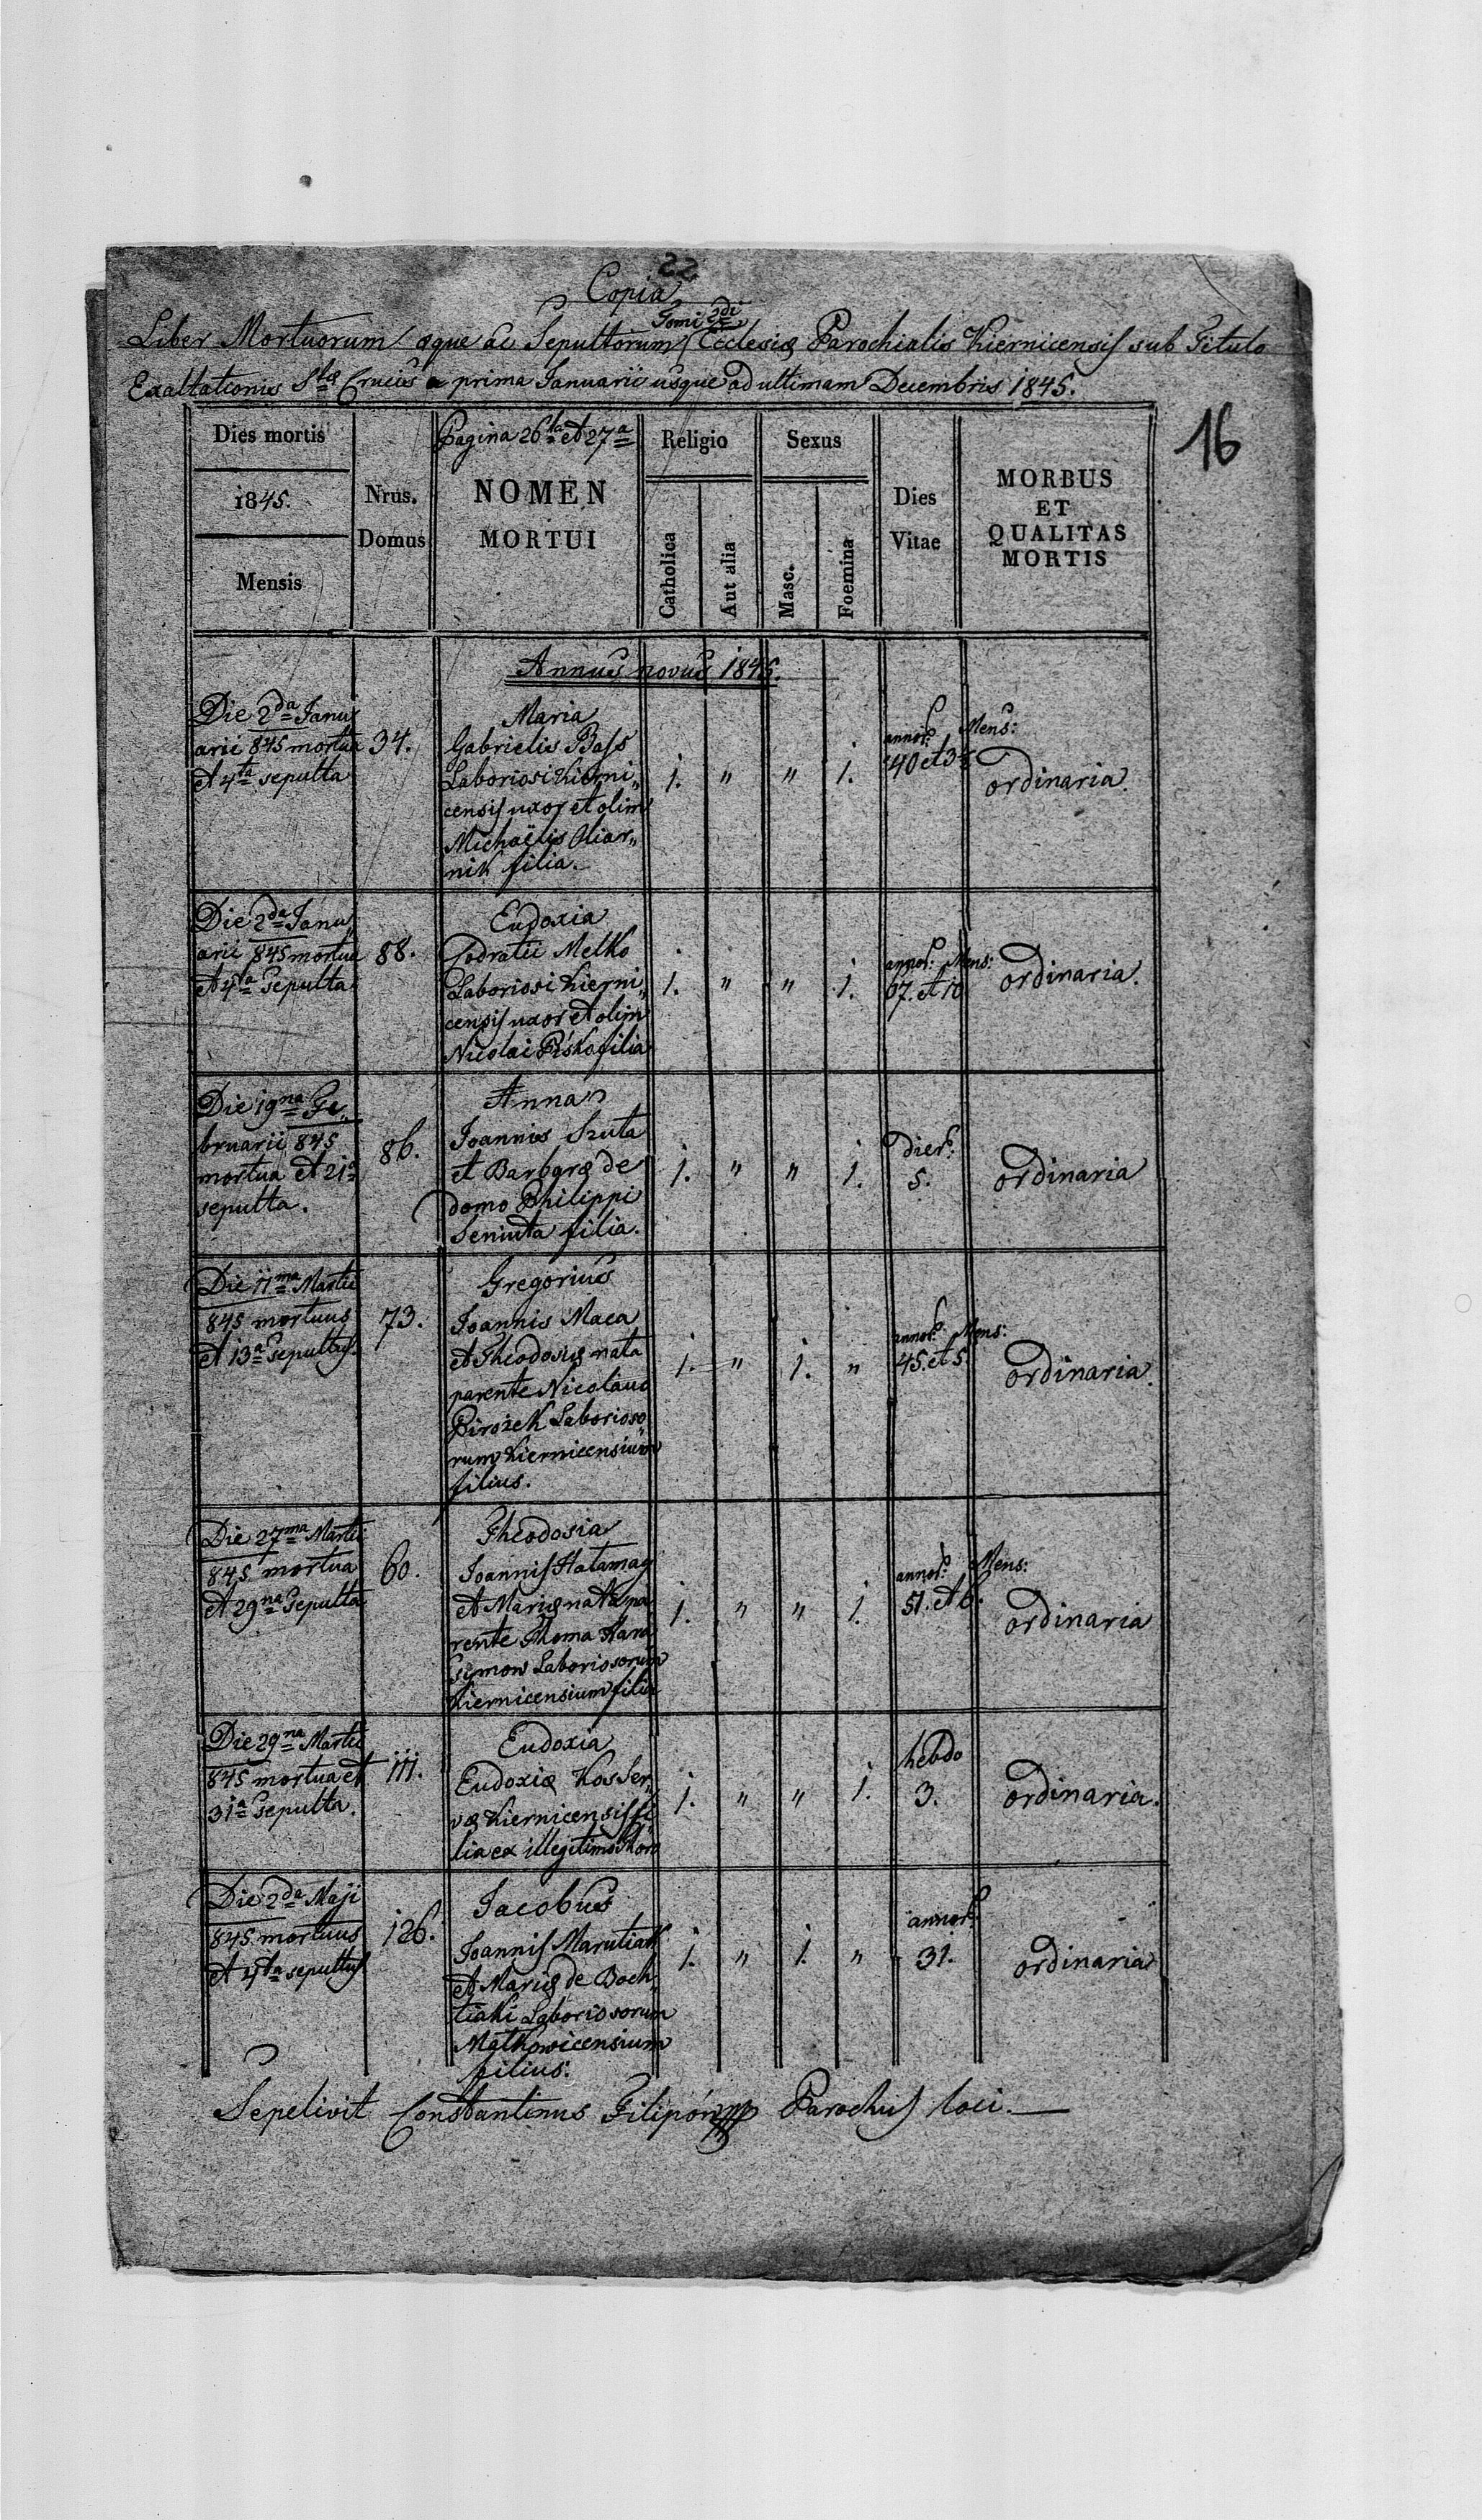 22
Copia
Tomi 2di
Liber Mortuorum aeque ac Sepultorum Ecclesiæ Parochialis Kiernicensis sub Titulo
Exaltationis Stæ Crucis a prima Januarii usque ad ultimam Decembris 1845.
16
Dies mortis
1845.
Mensis
Nrus.
Domus
Pagina 26ta et 27a
NOMEN
MORTUI
Religio
Catholica
Aut alia
Sexus
Masc.
Foemina
Dies
Vitae
MORBUS
ET
QUALITAS
MORTIS
Annus novus 1845.
Die 2da Janu
arii 845 mortua
et 4ta sepulta
34.
Maria
Gabrielis Bass
Laboriosi Kierni„
censis uxor et olim
Michaëlis Oliar„
nik filia.
1. " " 1.
annor: Mens:
40 et 3
ordinaria.
Die 2da Janu„
arii 845 mortua
et 4ta Sepulta
88.
Eudoxia
Codratii Melko
Laboriosi Kierni„
censis uxor et olim
Nicolai Pisko filia
1. " " 1.
annor: Mens:
67. et 10
ordinaria.
Die 19na Fe„
bruarii 845
mortua et 21a
sepulta.
86.
Anna
Joannis Szuta
et Barbaræ de
domo Philippi
Seniuta filia.
1. " " 1.
dier:
5.
ordinaria
Die 11ma Martii
845 mortuus
et 13a Sepultus.
73.
Gregorius
Joannis Maca
et Theodosiæ nata
parente Nicolauo
Pirożek Laborioso„
rum Kiernicensium
filius.
1. " 1. "
annor: Mens:
45. et 5.
ordinaria.
Die 27ma Martii
845 mortua
et 29na Sepulta
60.
Theodosia
Joannis Hatamay
et Mariæ nata pa„
rente Thoma Hara„
symow Laboriosorum
Kiernicensium filia
1. " " 1.
annor: Mens:
51. et 6.
ordinaria
Die 29na Martii
845 mortua et
31a Sepulta.
111.
Eudoxia
Eudoxiæ Kosser„
væ Kiernicensis fi„
lia ex illegitimo thoro
1. " " 1.
hebdo
3.
ordinaria.
Die 2da Maji
845 mortuus
et 4ta sepultus
126.
Jacobus
Joannis Marutiak
et Mariæ de Boch„
tiaki Laboriosorum
Matkowicensium
filius.
1. " 1. "
annor:
31.
ordinaria
Sepelivit Constantinus Filipón mp Parochus loci.